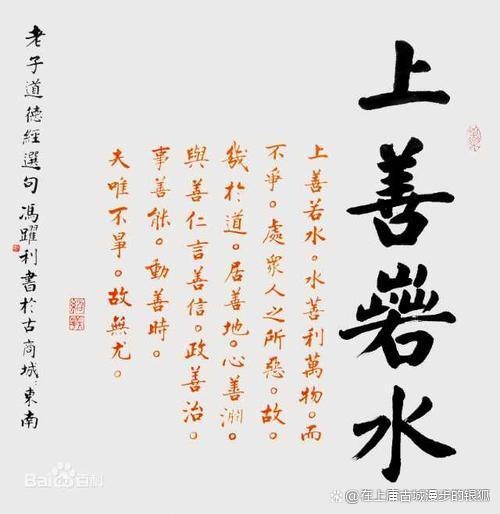 上善若水
上善若水。水善利萬物。而
不爭。處衆人之所惡。故。
幾於道。居善地。心善淵。
與善仁言善信。政善治。
事善能。動善時。
夫唯不爭。故無尤。
老子道德經選句 馮躍利書於古商城:東南
Bai百科
@在上庸古城漫步的银狐